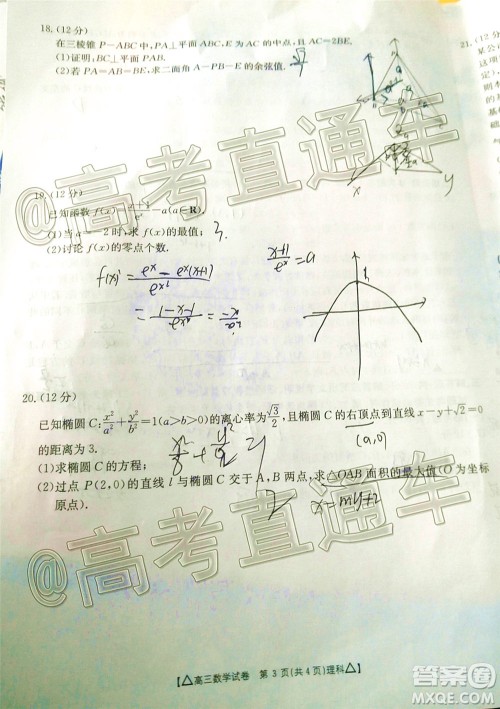 18.(12分)
在三棱锥 P-ABC 中,PA⊥平面ABC,E为AC的中点,且AC=2BE.
(1)证明:BC⊥平面 PAB.
(2)若 PA=AB=BE,求二面角 A-PB-E 的余弦值.
21.(12
某公
19.(12分)
已知函数 f(x)=(x+1)/e^x-a(a∈R).
(1)当 a=-2 时,求 f(x)的最值;
(2)讨论 f(x)的零点个数.
(x+1)/e^x=a
20.(12分)
已知椭圆 C:x²/a²+y²/b²=1(a>b>0)的离心率为√3/2,且椭圆 C 的右顶点到直线 x-y+√2=0
的距离为 3.
(a,0)
(1)求椭圆 C 的方程;
(2)过点 P(2,0)的直线 l 与椭圆 C 交于 A,B 两点,求△OAB 面积的最大值(O 为坐标
原点).
x=my+2
@高考直通车
@高考直通车
【△高三数学试卷 第 3 页(共 4 页)理科△】
答案圈
MXQE.COM